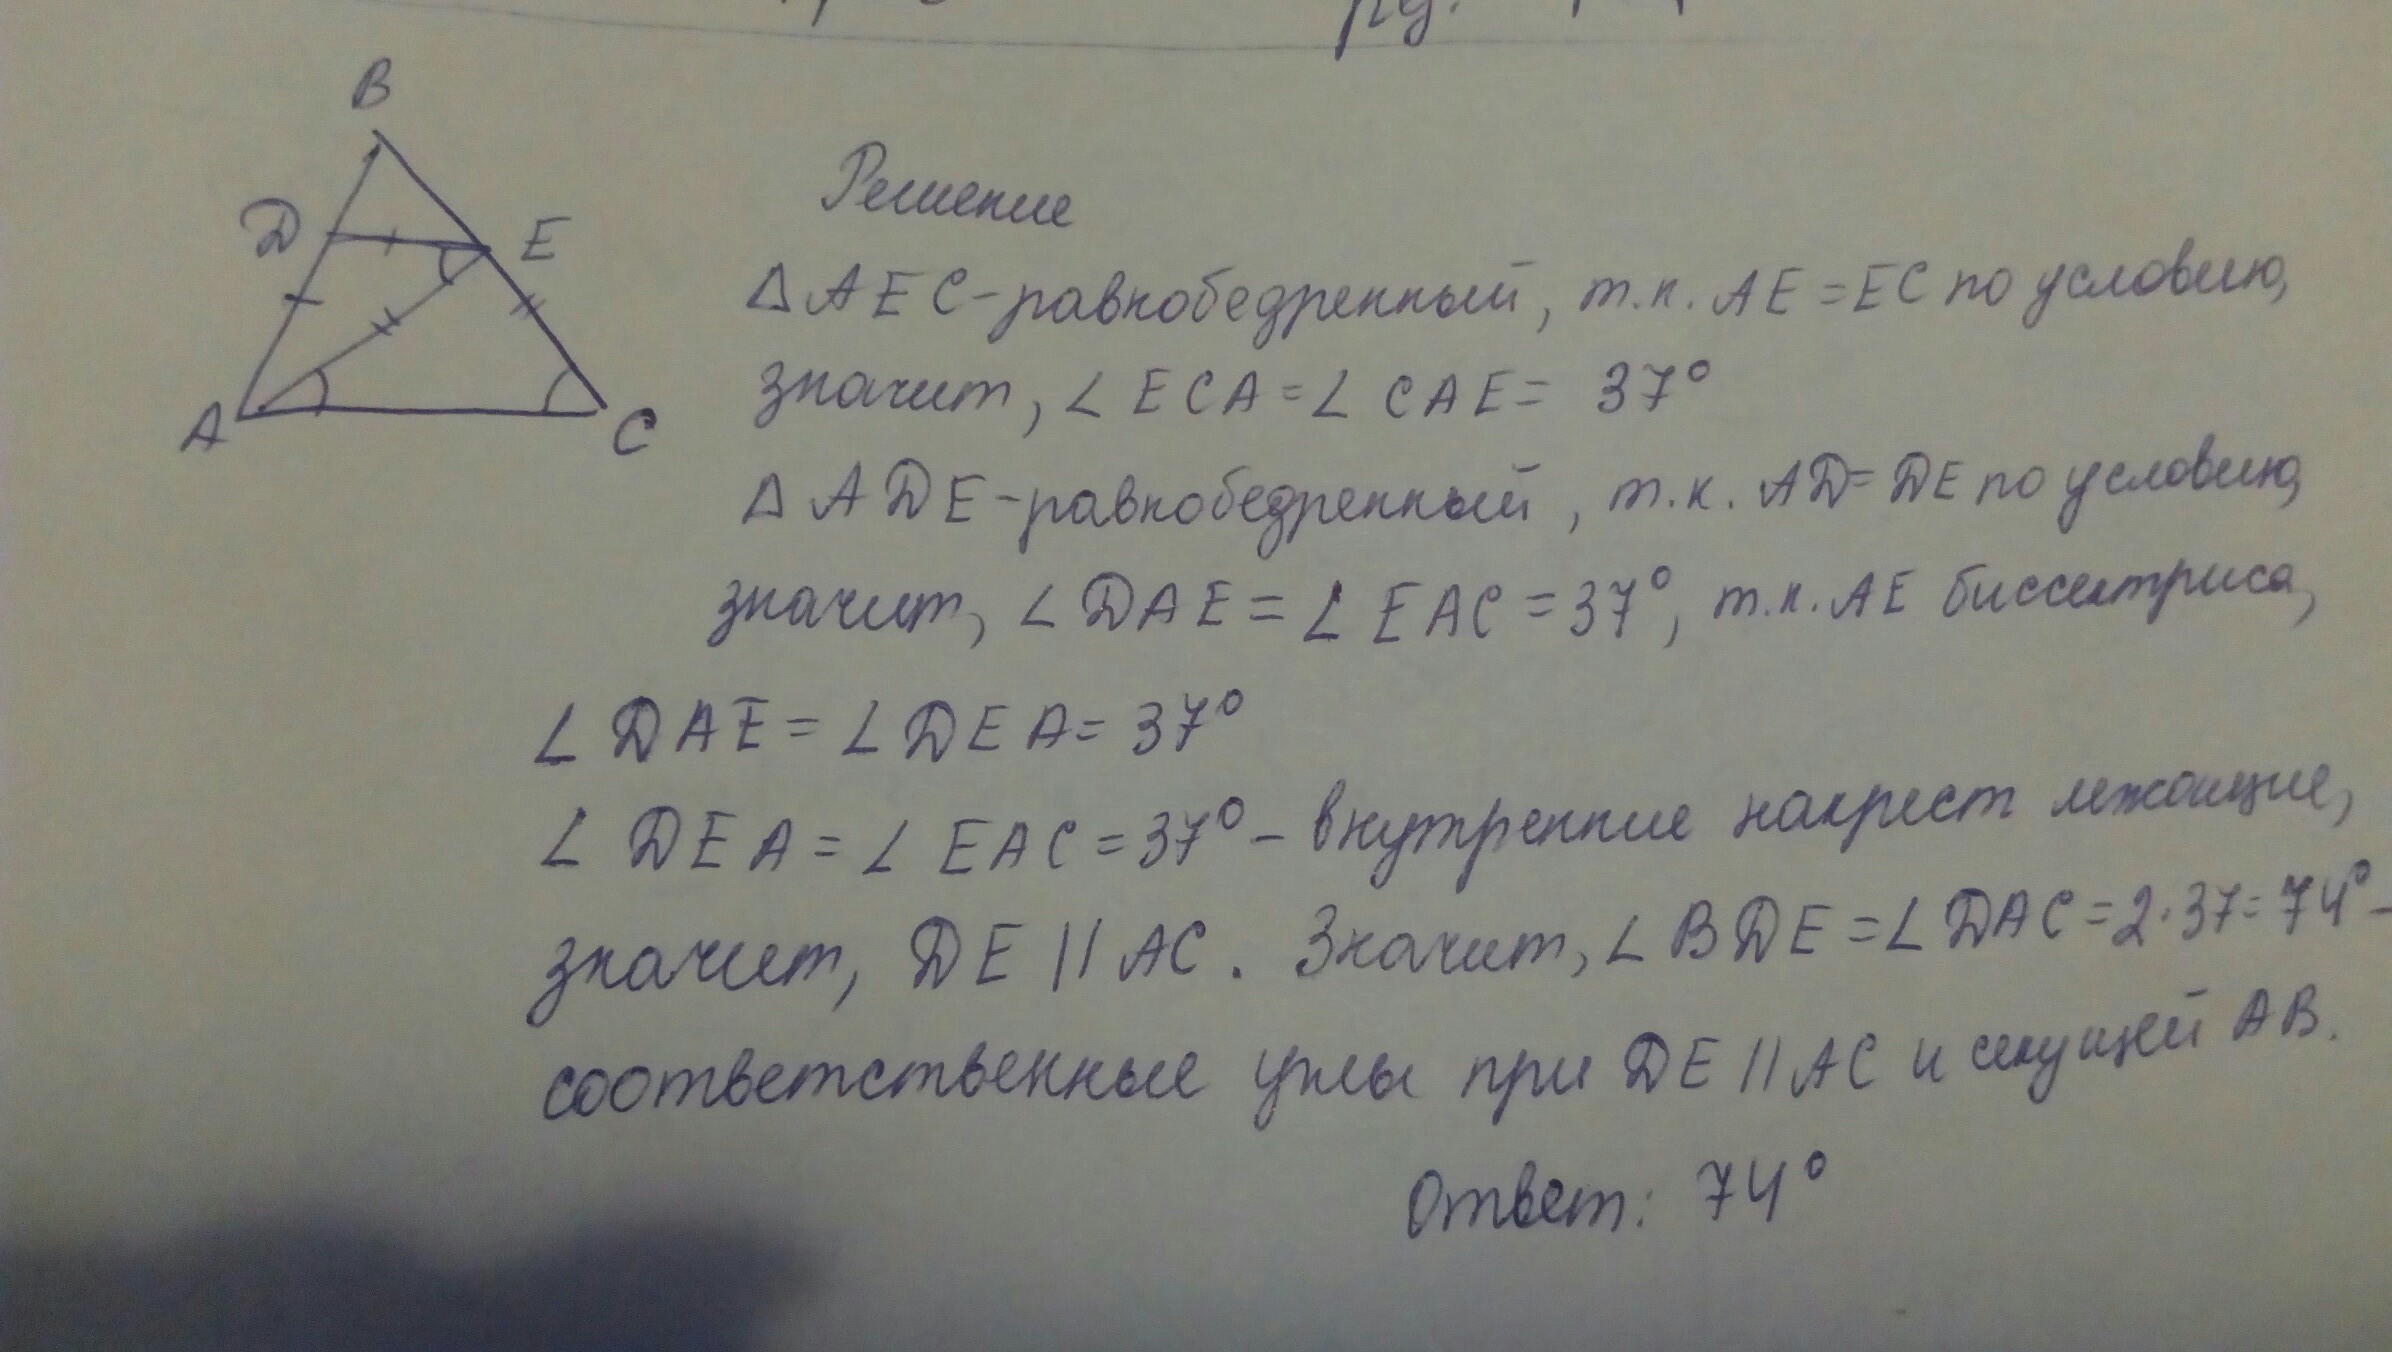 B
D
E
A
C
Решение
△AEC-равнобедренный, т.к. AE=EC по условию,
значит, ∠ECA=∠CAE= 37°
△ADE-равнобедренный, т.к. AD=DE по условию,
значит, ∠DAE=∠EAC=37°, т.к. AE биссектриса,
∠DAE=∠DEA=37°
∠DEA=∠EAC=37°- внутренние накрест лежащие,
значит, DE||AC. Значит, ∠BDE=∠DAC=2·37=74°-
соответственные углы при DE||AC и секущей AB.
Ответ: 74°